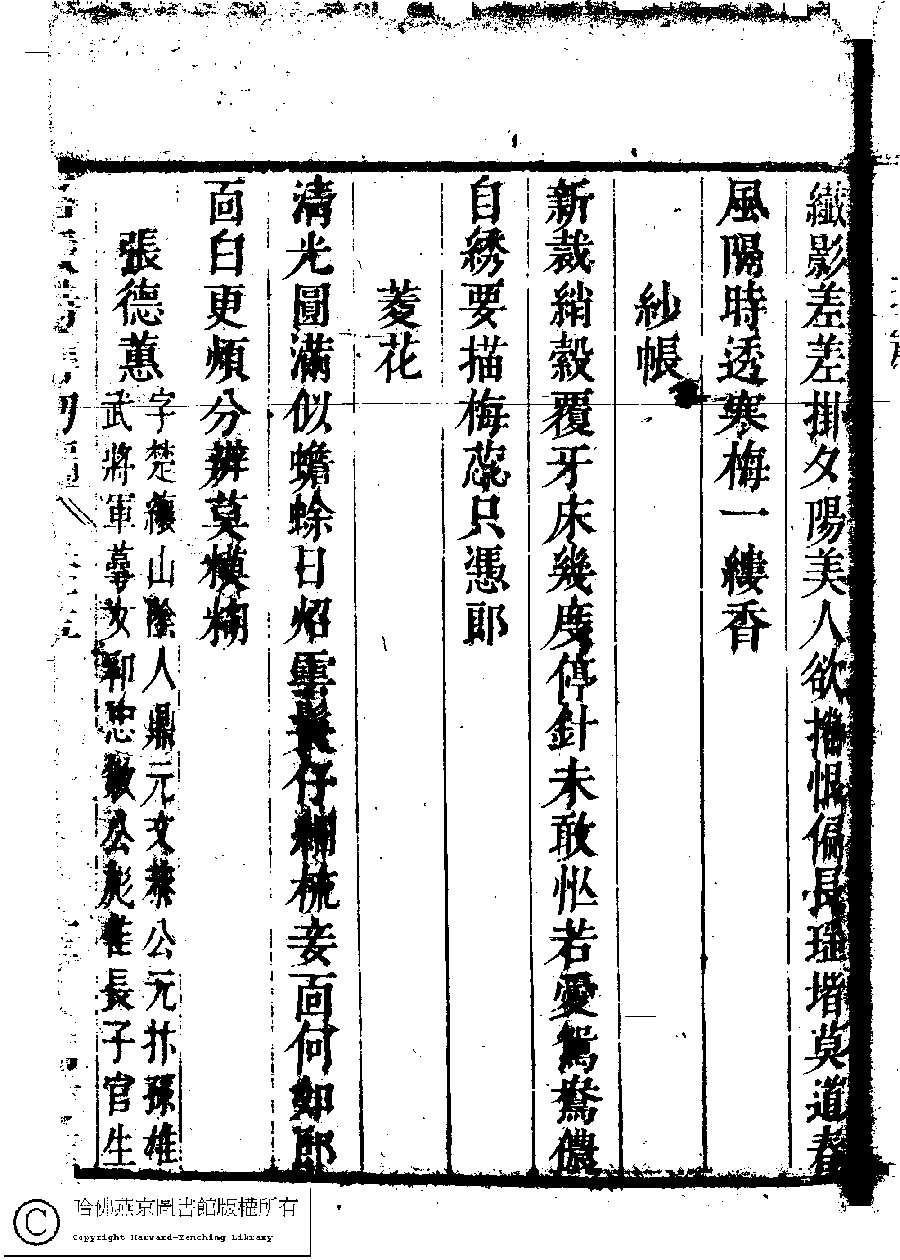 纖影差差掛夕陽美人欲捲恨偏長瑶堦莫道春
風隔時透寒梅一縷香
紗帳
新裁綃縠覆牙床幾度停針未敢忙若愛鴛鴦儂
自綉要描梅蕊只憑郎
菱花
清光圓滿似蟾蜍日炤雲鬟仔細梳妾面何如郎
面白更煩分辨莫糢糊
張德蕙
字楚纕山陰人鼎元文恭公元忭孫雄
武將軍蕚女祁忠敏公彪佳長子官生
哈佛燕京圖書館版權所有
Copyright Harvard-Yenching Library